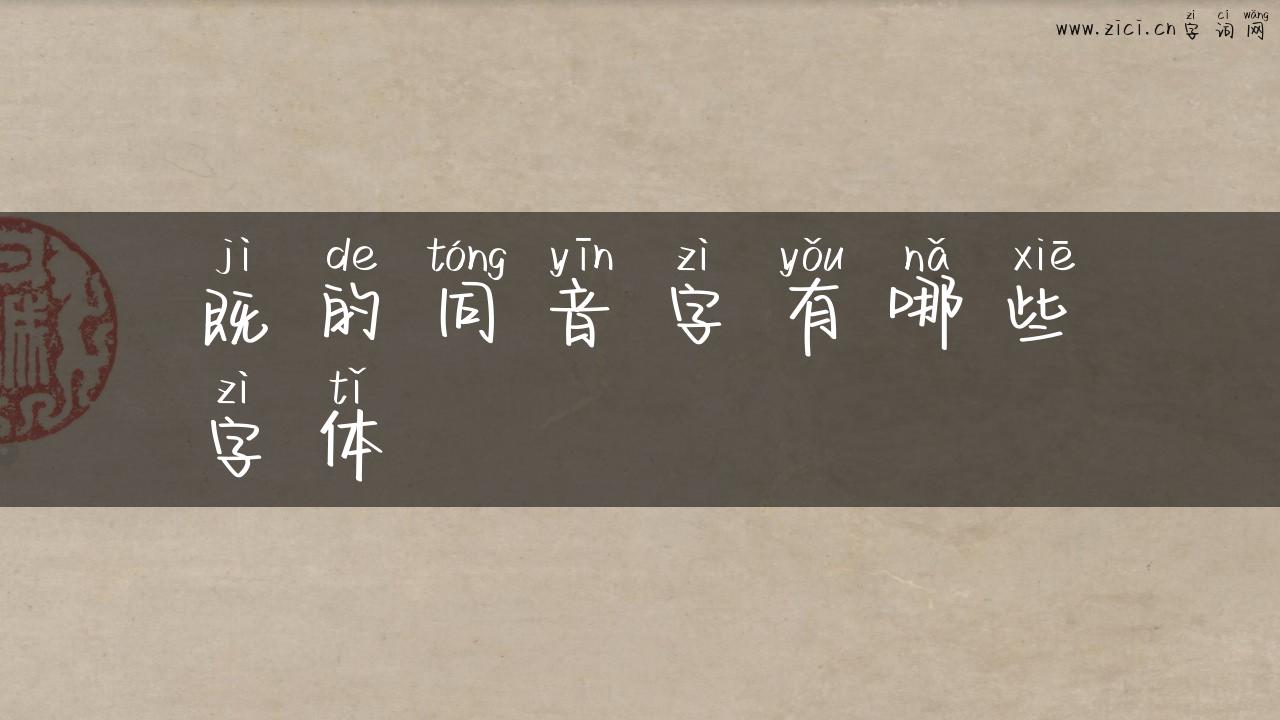 www.zici.cn zì cí wǎng 字词网
jì de tóng yīn zì yǒu nǎ xiē
既的同音字有哪些
zì tǐ
字体